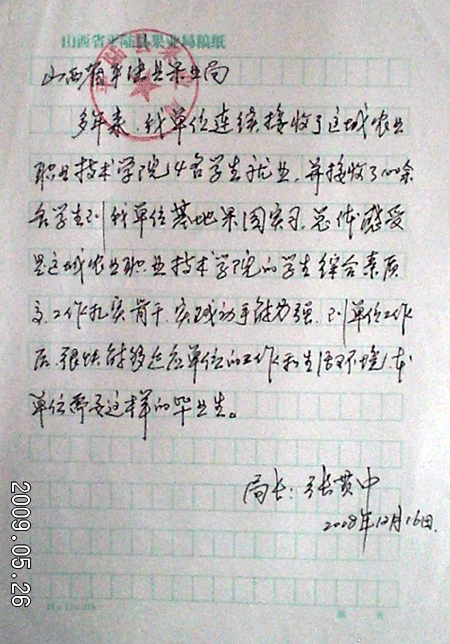 山西省平陆县果业局稿纸
山西省平陆县果业局
多年来，我单位连续接收了运城农业
职业技术学院14名学生就业，并接收了100余
名学生到我单位基地果园实习，总体感受
是运城农业职业技术学院的学生综合素质
高，工作扎实肯干，实践动手能力强，到单位工作
后，很快能够适应单位的工作和生活环境，本
单位需要这样的毕业生。
局长：张黄中
2008年12月16日.
2009.05.26